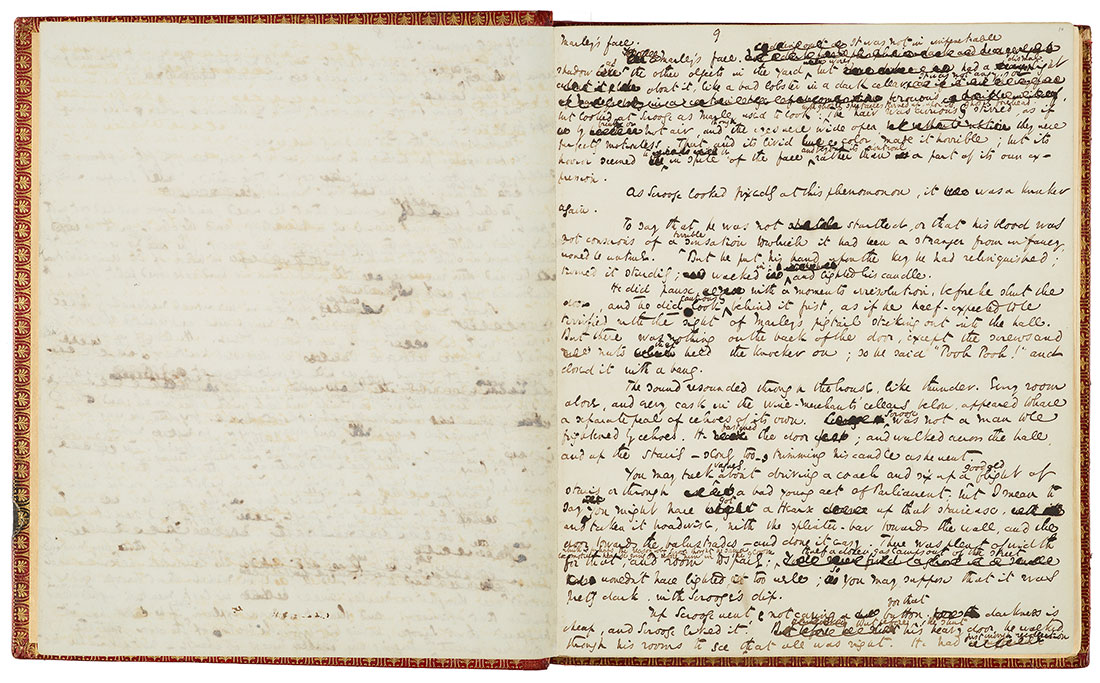 9
Marley's face.
Marley's face. It was not in impenetrable
shadow as the other objects in the yard were, but had a dismal light
about it, like a bad lobster in a dark cellar. It was not angry or
ferocious,
but looked at Scrooge as Marley used to look: with ghostly spectacles turned up on its ghostly forehead. The hair was curiously stirred, as if
by breath or hot air, and though the eyes were wide open they were
perfectly motionless. That, and its livid color, made it horrible; but its
horror seemed to be in spite of the face and beyond its control, rather than a part of its own ex-
pression.
As Scrooge looked fixedly at this phenomenon, it was a knocker
again.
To say that he was not startled, or that his blood was
not conscious of a terrible sensation to which it had been a stranger from infancy,
would be untrue. But he put his hand upon the key he had relinquished;
turned it sturdily; walked in; and lighted his candle.
He did pause, with a moment's irresolution, before he shut the
door and he did look cautiously behind it first, as if he half-expected to be
terrified with the sight of Marley's pigtail sticking out into the hall.
But there was nothing on the back of the door, except the screws and
nuts that held the knocker on; so he said "Pooh Pooh!" and
closed it with a bang.
The sound resounded through the house, like thunder. Every room
above, and every cask in the wine-merchant's cellars below, appeared to have
a separate peal of echoes of its own. Scrooge was not a man to be
frightened by echoes. He fastened the door; and walked across the hall
and up the stairs - slowly too - trimming his candle as he went.
You may talk vaguely about driving a coach and six up a good old flight of
stairs or through a bad young act of Parliament. but I mean to
say you might have got a Hearse up that staircase,
and taken it broadwise, with the splinter-bar towards the wall, and the
door towards the balustrades - and done it easy. There was plenty of width
for that, and room to spare;
Half a dozen gas lamps out of the street
wouldn't have lighted it too well; so you may suppose that it was
pretty dark with Scrooge's dip.
Up Scrooge went, not caring a button for that. darkness is
cheap, and Scrooge liked it. But before he shut his heavy door, he walked
through his rooms to see that all was right. He had just enough recollection